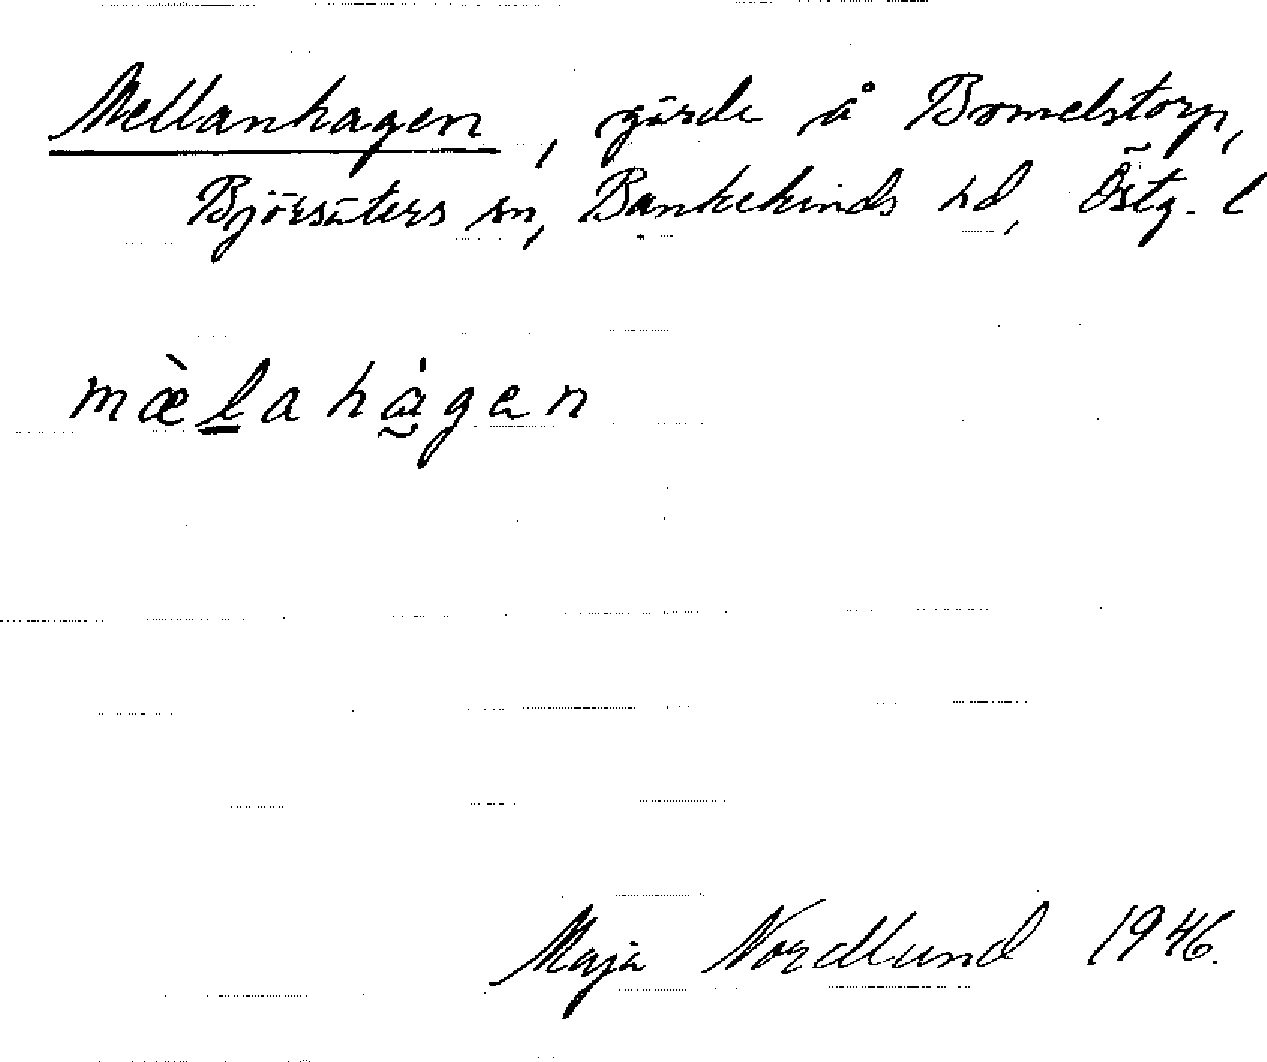 Mellanhagen, gärde å Bomelstorp,
Björsäters sn, Bankekinds hd, Östg. l
mæ̀l̲a hȧ̰gen
Maja Nordlund 1946.